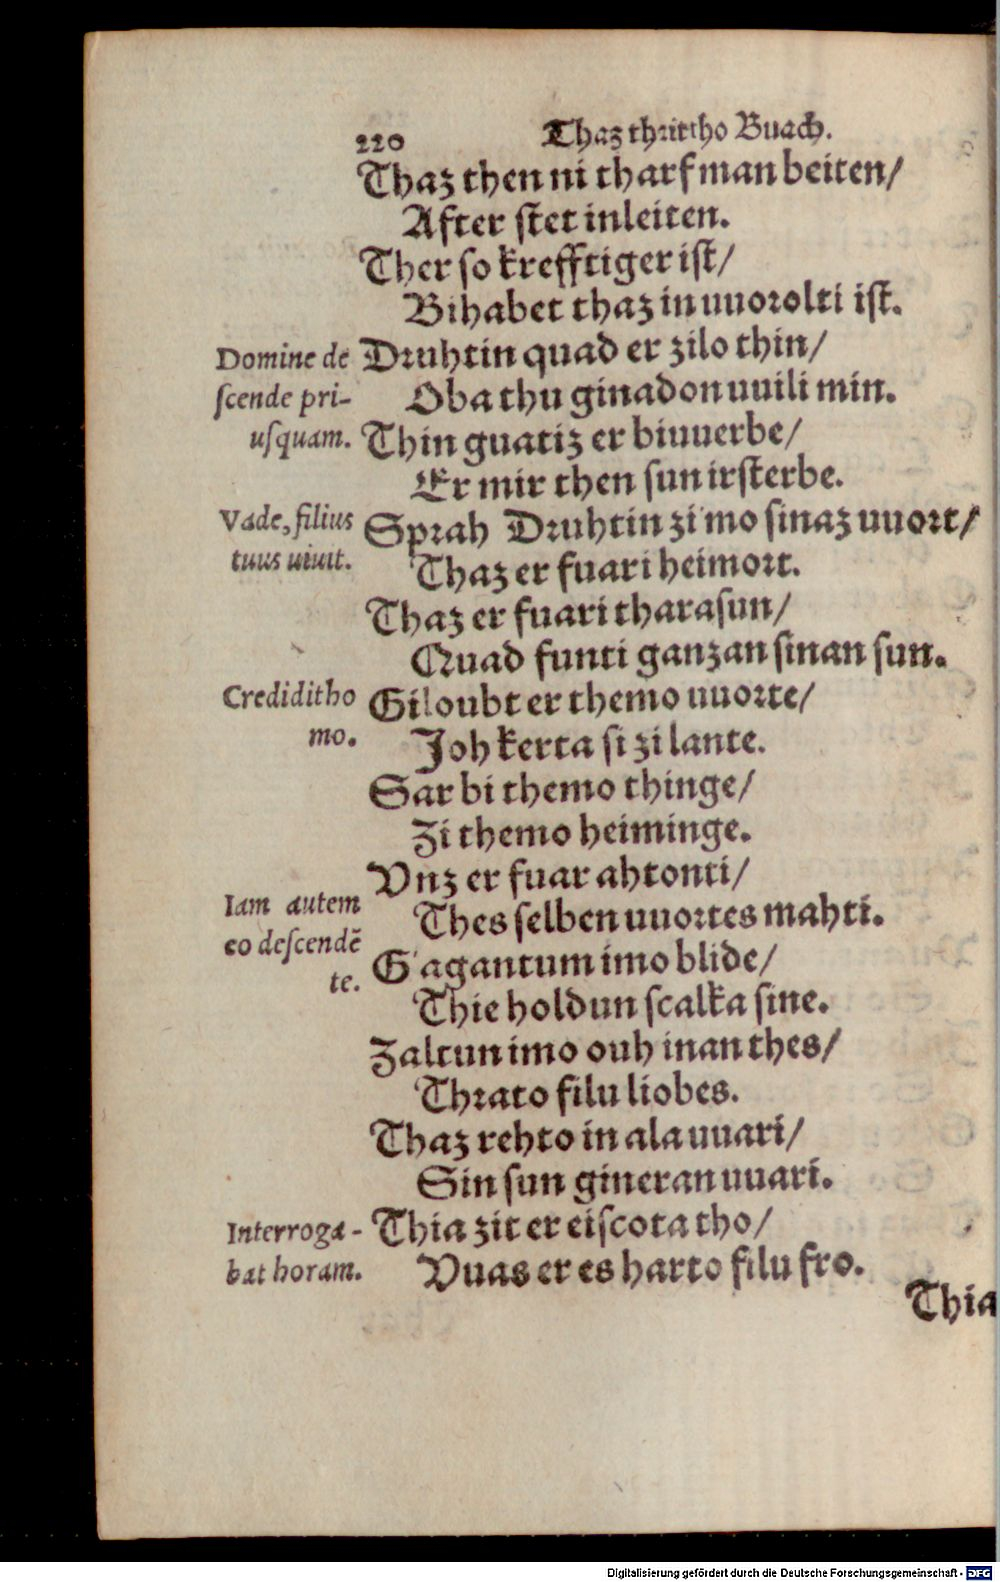 220 Thaz thrittho Buach.
Thaz then ni tharf man beiten/
After stet inleiten.
Ther so krefftiger ist/
Bihabet thaz in uuorolti ist.
Domine de
scende pri-
usquam.
Druhtin quad er zilo thin/
Oba thu ginadon uuili min.
Thin guatiz er biuuerbe/
Er mir then sun irsterbe.
Vade, filius
tuus uiuit.
Sprah Druhtin zi'mo sinaz uuort/
Thaz er fuari heimort.
Thaz er fuari tharasun/
Quad funti ganzan sinan sun.
Crediditho
mo.
Giloubt er themo uuorte/
Joh kerta si zi lante.
Sar bi themo thinge/
Zi themo heiminge.
Vnz er fuar ahtonti/
Thes selben uuortes mahti.
Iam autem
eo descendē
te.
G'agantum imo blide/
Thie holdun scalka sine.
Zaltun imo ouh inan thes/
Thrato filu liobes.
Thaz rehto in ala uuari/
Sin sun gineran uuari.
Interroga-
bat horam.
Thia zit er eiscota tho/
Vuas er es harto filu fro.
Thia
Digitalisierung gefördert durch die Deutsche Forschungsgemeinschaft - DFG